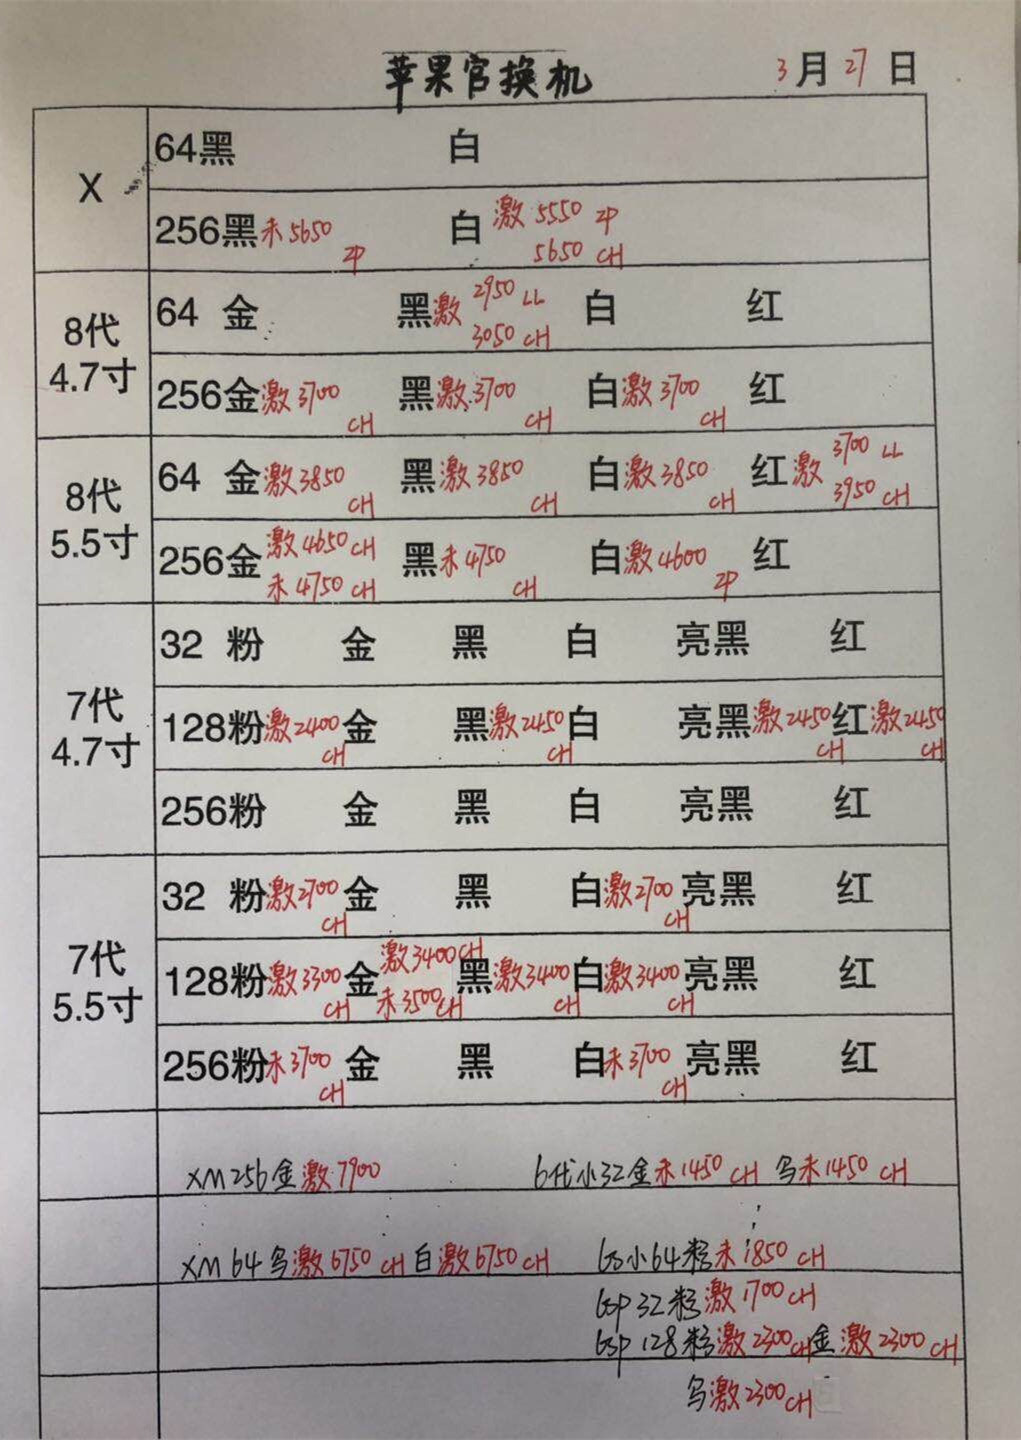 苹果官换机 3月27日
X
64黑 白
256黑未5650 ZP 白 激5550 ZP
5650 CH
8代
4.7寸
64 金 黑激 2950 LL 白 红
3050 CH
256金激3700 CH 黑激3700 CH 白激3700 CH 红
8代
5.5寸
64 金激3850 CH 黑激3850 CH 白激3850 CH 红激 3700 LL
3950 CH
256金 激4650 CH 黑未4750 CH 白激4600 ZP 红
未4750 CH
7代
4.7寸
32 粉 金 黑 白 亮黑 红
128粉激2400 CH 金 黑激2450 CH 白 亮黑激2450 CH 红激2450 CH
256粉 金 黑 白 亮黑 红
7代
5.5寸
32 粉激2700 CH 金 黑 白激2700 CH 亮黑 红
128粉激3300 CH 金 激3400 CH 黑激3400 CH 白激3400 CH 亮黑 红
未3500 CH
256粉未3700 CH 金 黑 白未3700 CH 亮黑 红
XM 256金激7900 6代小32金未1450 CH 乌未1450 CH
XM 64乌激6750 CH 白激6750 CH 6S小64粉未1850 CH
6SP 32粉激1700 CH
6SP 128粉激2300 CH 金激2300 CH
乌激2300 CH